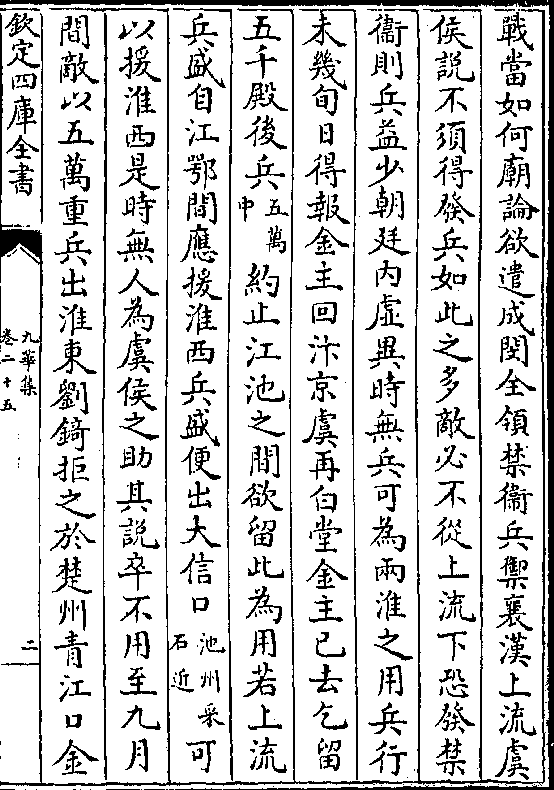 戰當如何廟論欲遣成閔全領禁衞兵禦襄漢上流虞
侯說不須得發兵如此之多敵必不從上流下恐發禁
衞則兵益少朝廷内虚異時無兵可為兩淮之用兵行
未幾旬日得報金主回汴京虞再白堂金主已去乞留
五千殿後兵五萬中約止江池之間欲留此為用若上流
兵盛自江鄂間應援淮西兵盛便出大信口池州采石近可
以援淮西是時無人為虞侯之助其說卒不用至九月
間敵以五萬重兵出淮東劉錡拒之於楚州青江口金
欽定四庫全書
九華集
卷二十五
二